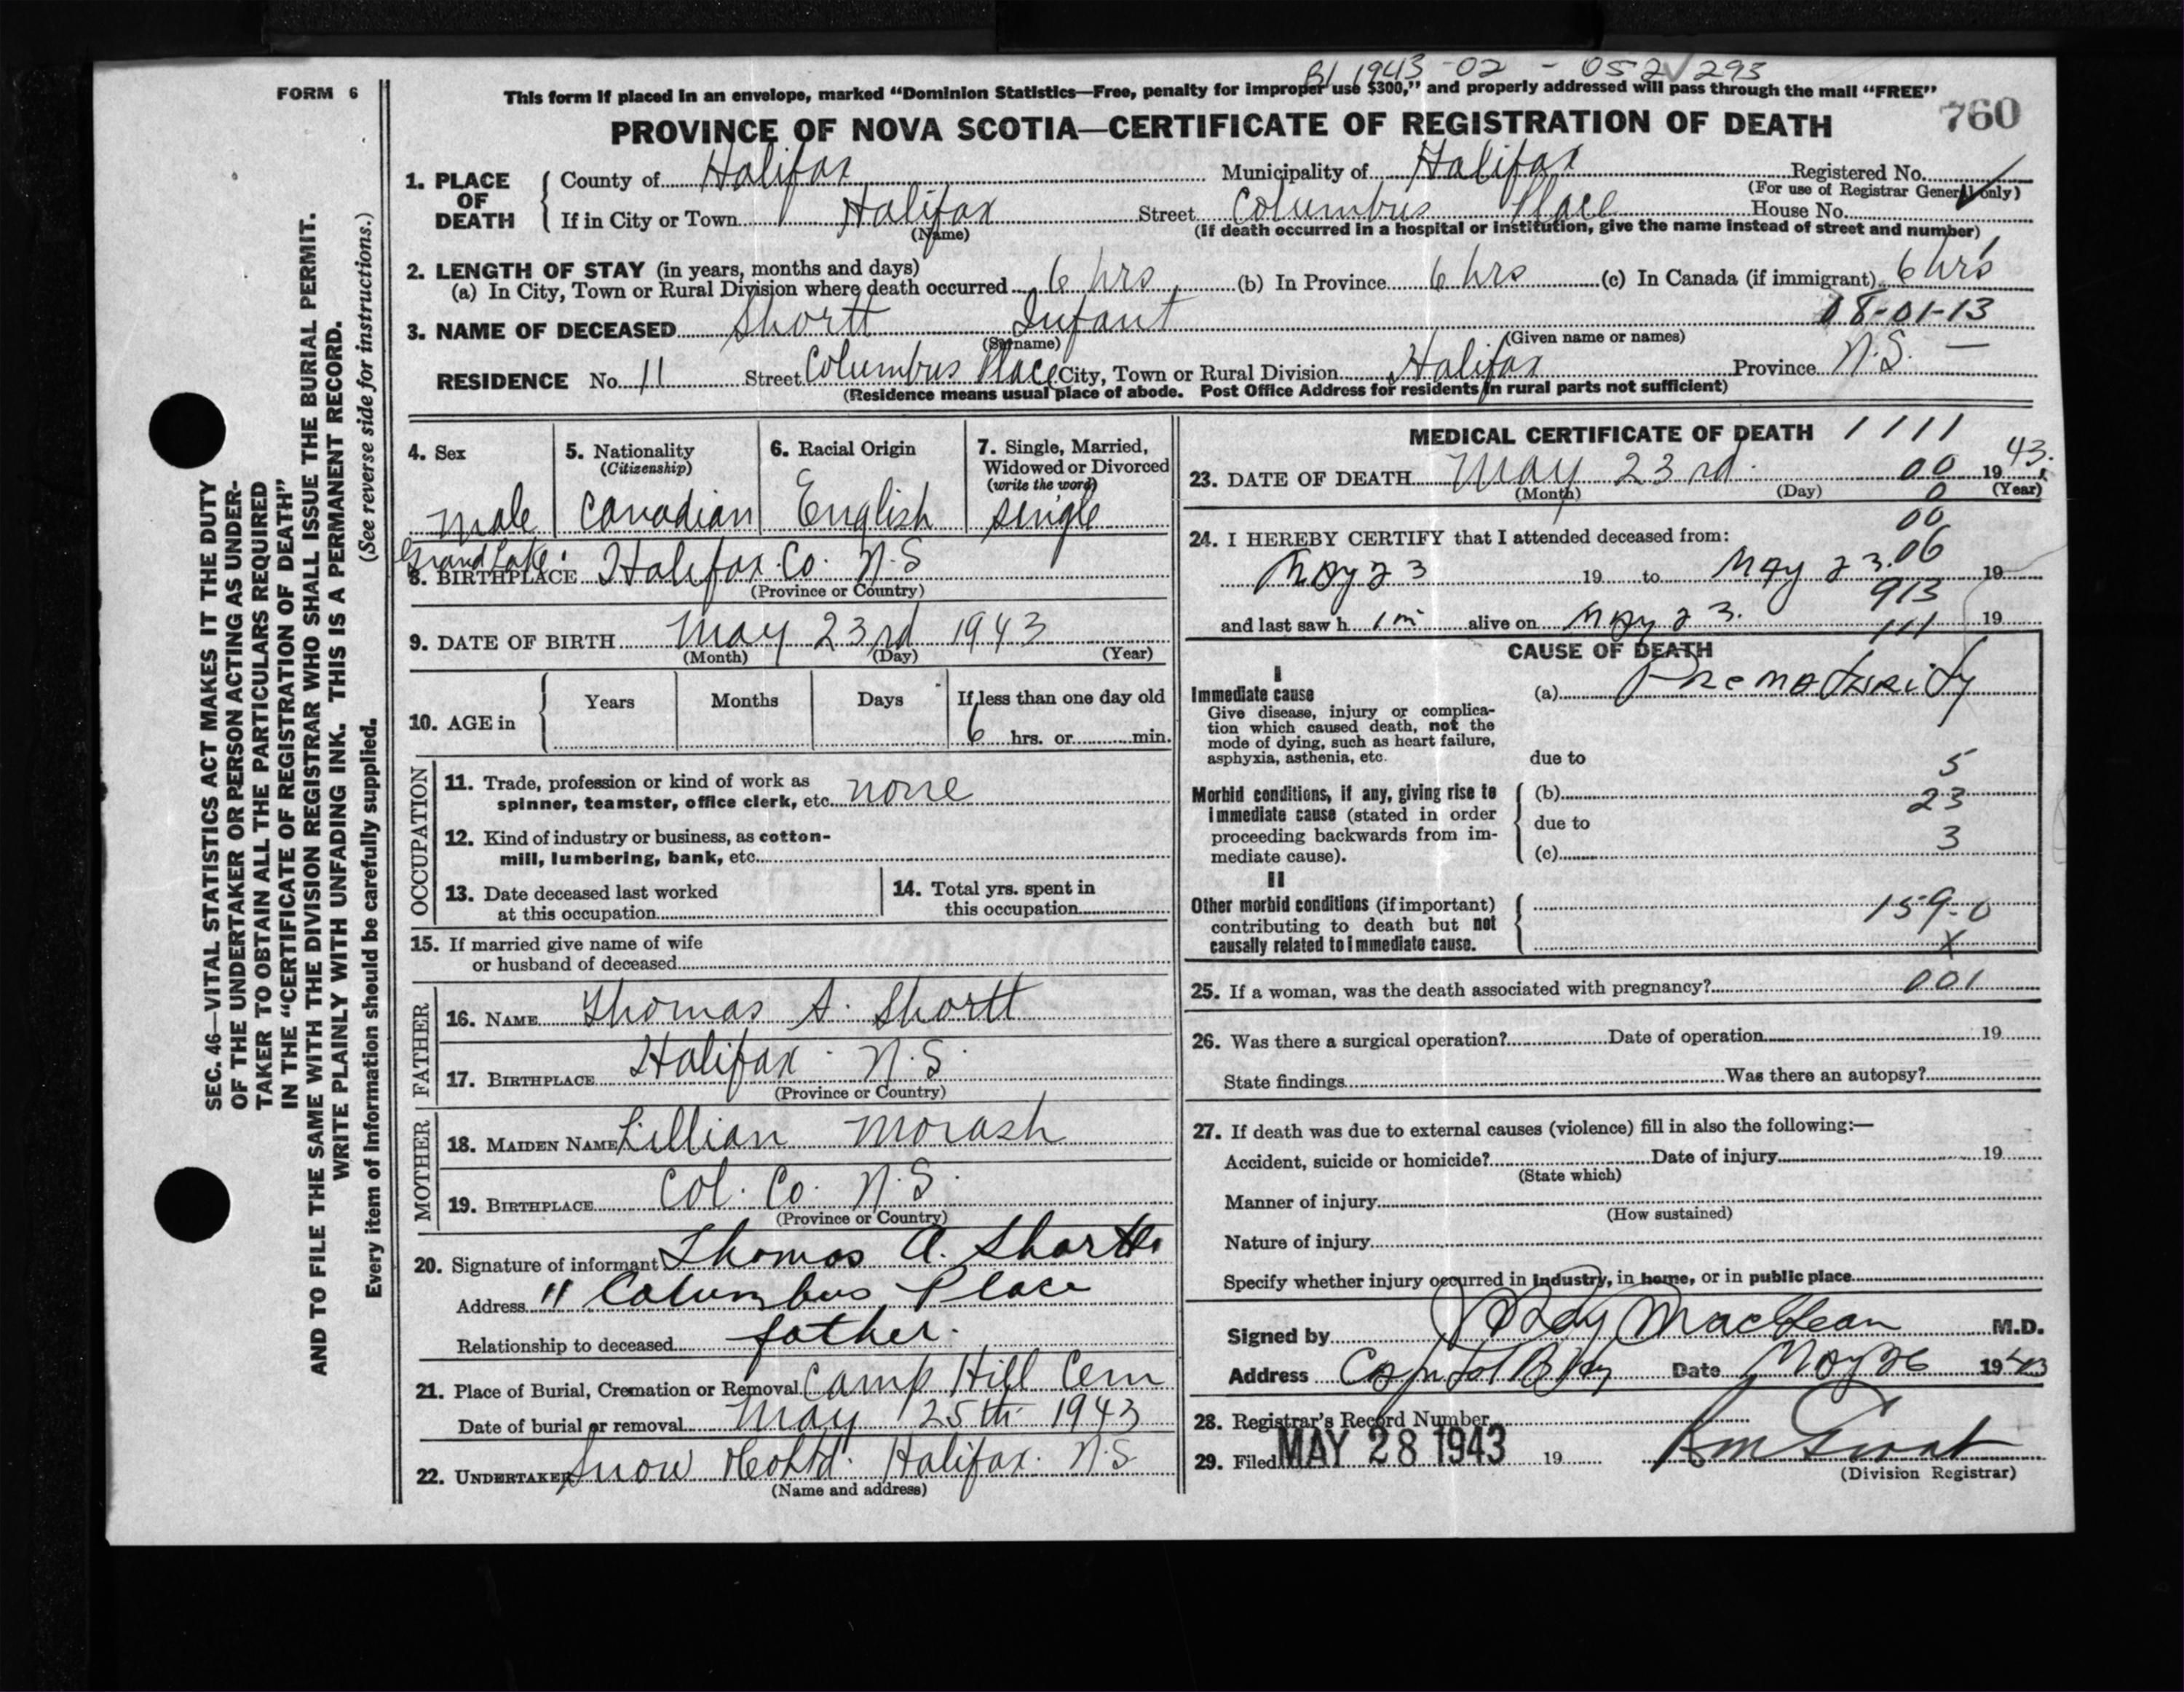 B1 1943-02-052293
FORM 6
This form if placed in an envelope, marked "Dominion Statistics—Free, penalty for improper use $300," and properly addressed will pass through the mail "FREE"
760
PROVINCE OF NOVA SCOTIA—CERTIFICATE OF REGISTRATION OF DEATH
1. PLACE OF DEATH
County of Halifax Municipality of Halifax Registered No.
(For use of Registrar General only)
If in City or Town Halifax Street Columbus Place House No.
(Name) (If death occurred in a hospital or institution, give the name instead of street and number)
2. LENGTH OF STAY (in years, months and days)
(a) In City, Town or Rural Division where death occurred 6 hrs (b) In Province 6 hrs (c) In Canada (if immigrant) 6 hrs
08-01-13
3. NAME OF DECEASED Shortt Infant
(Surname) (Given name or names)
RESIDENCE No. 11 Street Columbus Place City, Town or Rural Division Halifax Province N.S. —
(Residence means usual place of abode. Post Office Address for residents in rural parts not sufficient)
4. Sex
Male
5. Nationality
(Citizenship)
Canadian
6. Racial Origin
English
7. Single, Married,
Widowed or Divorced
(write the word)
single
Grand Lake
8. BIRTHPLACE Halifax Co. N.S
(Province or Country)
9. DATE OF BIRTH May 23rd 1943
(Month) (Day) (Year)
10. AGE in
Years Months Days If less than one day old
6 hrs. or min.
OCCUPATION
11. Trade, profession or kind of work as
spinner, teamster, office clerk, etc. none
12. Kind of industry or business, as cotton-
mill, lumbering, bank, etc.
13. Date deceased last worked
at this occupation
14. Total yrs. spent in
this occupation
15. If married give name of wife
or husband of deceased
FATHER
16. NAME Thomas A. Shortt
17. BIRTHPLACE Halifax. N.S.
(Province or Country)
MOTHER
18. MAIDEN NAME Lillian Morash
19. BIRTHPLACE Col. Co. N.S.
(Province or Country)
20. Signature of informant Thomas A. Shortt
Address 11 Columbus Place
Relationship to deceased father.
21. Place of Burial, Cremation or Removal Camp Hill Cem
Date of burial or removal May 25th 1943
22. UNDERTAKER Snow & Co Ltd. Halifax. N.S
(Name and address)
MEDICAL CERTIFICATE OF DEATH 1111
23. DATE OF DEATH May 23rd. 00 1943.
(Month) (Day) (Year)
0
00
24. I HEREBY CERTIFY that I attended deceased from:
06
May 23 19 to May 23. 19
913
and last saw h im alive on May 23. 19
111
CAUSE OF DEATH
I
Immediate cause
Give disease, injury or complica-
tion which caused death, not the
mode of dying, such as heart failure,
asphyxia, asthenia, etc.
(a) Prematurity
due to
5
Morbid conditions, if any, giving rise to
immediate cause (stated in order
proceeding backwards from im-
mediate cause).
(b)
23
due to
3
(c)
II
Other morbid conditions (if important)
contributing to death but not
causally related to immediate cause.
159-0
X
25. If a woman, was the death associated with pregnancy? 001
26. Was there a surgical operation? Date of operation 19
State findings Was there an autopsy?
27. If death was due to external causes (violence) fill in also the following:—
Accident, suicide or homicide? Date of injury 19
(State which)
Manner of injury
(How sustained)
Nature of injury
Specify whether injury occurred in industry, in home, or in public place
Signed by MacLean M.D.
Address Capitol Bldg Date May 26 1943
28. Registrar's Record Number
29. Filed MAY 28 1943 19
(Division Registrar)
SEC. 46—VITAL STATISTICS ACT MAKES IT THE DUTY
OF THE UNDERTAKER OR PERSON ACTING AS UNDER-
TAKER TO OBTAIN ALL THE PARTICULARS REQUIRED
IN THE "CERTIFICATE OF REGISTRATION OF DEATH"
AND TO FILE THE SAME WITH THE DIVISION REGISTRAR WHO SHALL ISSUE THE BURIAL PERMIT.
WRITE PLAINLY WITH UNFADING INK. THIS IS A PERMANENT RECORD.
(See reverse side for instructions.)
Every item of information should be carefully supplied.